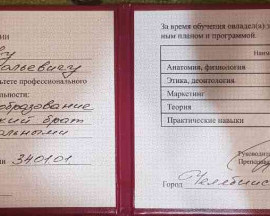 ии
ву
ьевичу
льтете профессионального
льности:
образование
кий брат
альными
ии 340101
За время обучения овладел(а)
ным планом и программой
Наи
Анатомия, физиология
Этика, деонтология
Маркетинг
Теория
Практические навыки
Руководитель
Город Челябинс